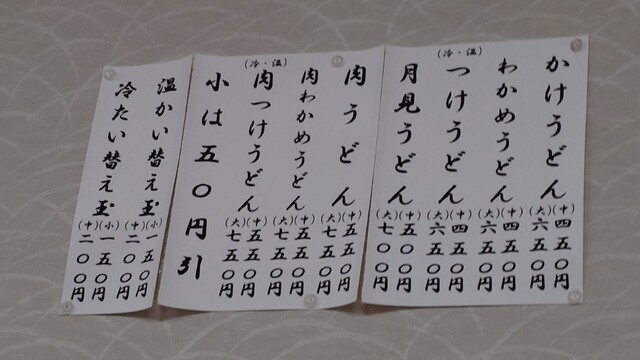 かけうどん (中)四五〇円 (大)六五〇円
わかめうどん (中)四五〇円 (大)六五〇円
(冷・温)
つけうどん (中)四五〇円 (大)六五〇円
月見うどん (中)五〇〇円 (大)七〇〇円
肉うどん (中)五五〇円 (大)七五〇円
肉わかめうどん (中)五五〇円 (大)七五〇円
(冷・温)
肉つけうどん (中)五五〇円 (大)七五〇円
小は五〇円引
温かい替え玉 (小)一五〇円 (中)二〇〇円
冷たい替え玉 (小)一五〇円 (中)二〇〇円